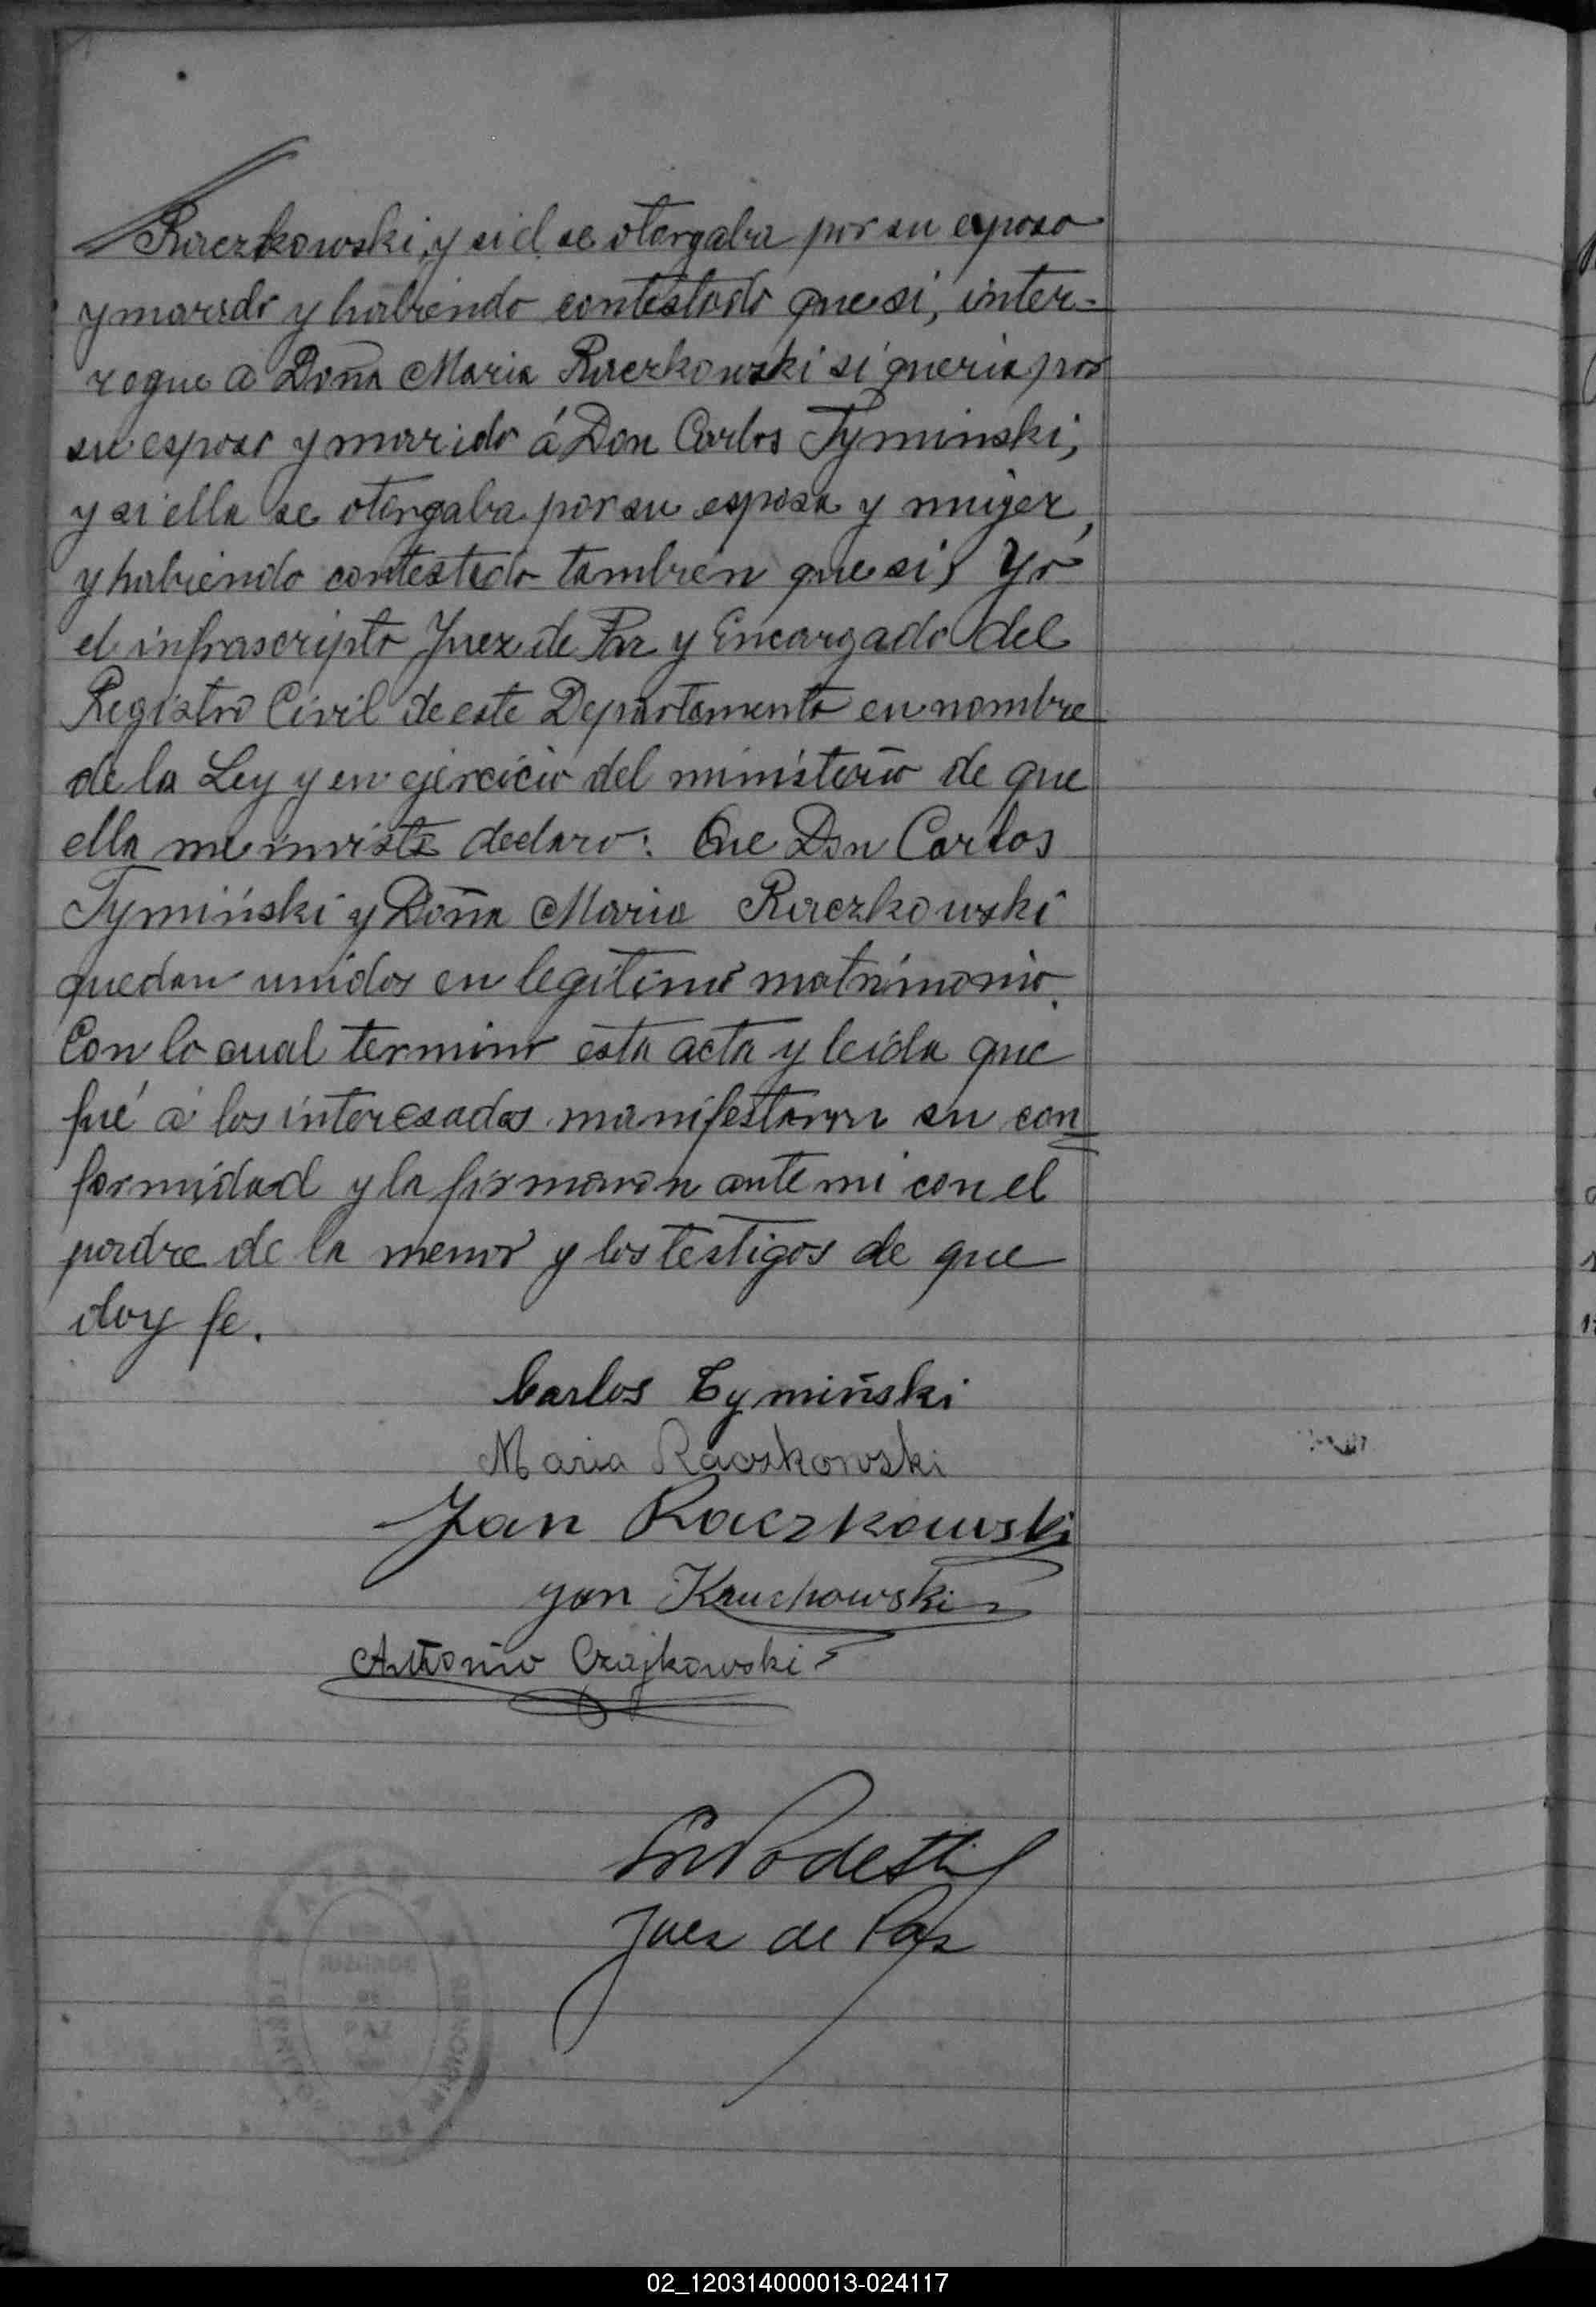 Raczkowski, y si el se otorgaba por su esposo
y marido y habiendo contestado que si, inter-
rogue a Doña Maria Raczkowski si queria por
su esposo y marido á Don Carlos Tyminski,
y si ella se otorgaba por su esposa y mujer,
y habiendo contestado tambien que si, Yo
el infrascripto Juez de Paz y Encargado del
Registro Civil de este Departamento en nombre
de la Ley y en ejercicio del ministerio de que
ella me inviste declaro: Que Don Carlos
Tymiński y Doña Maria Raczkowski
quedan unidos en legitimo matrimonio.
Con lo cual termino esta acta y leida que
fué á los interesados manifestaron su con=
formidad y la firmaron ante mi con el
padre de la menor y los testigos de que
doy fe.
Carlos Tymiński
Maria Raczkowski
Jan Raczkowski
Jan Kruchowski
Antonio Czajkowski
Podestá
Juez de Paz
JUZGADO
DE
PAZ
02_120314000013-024117